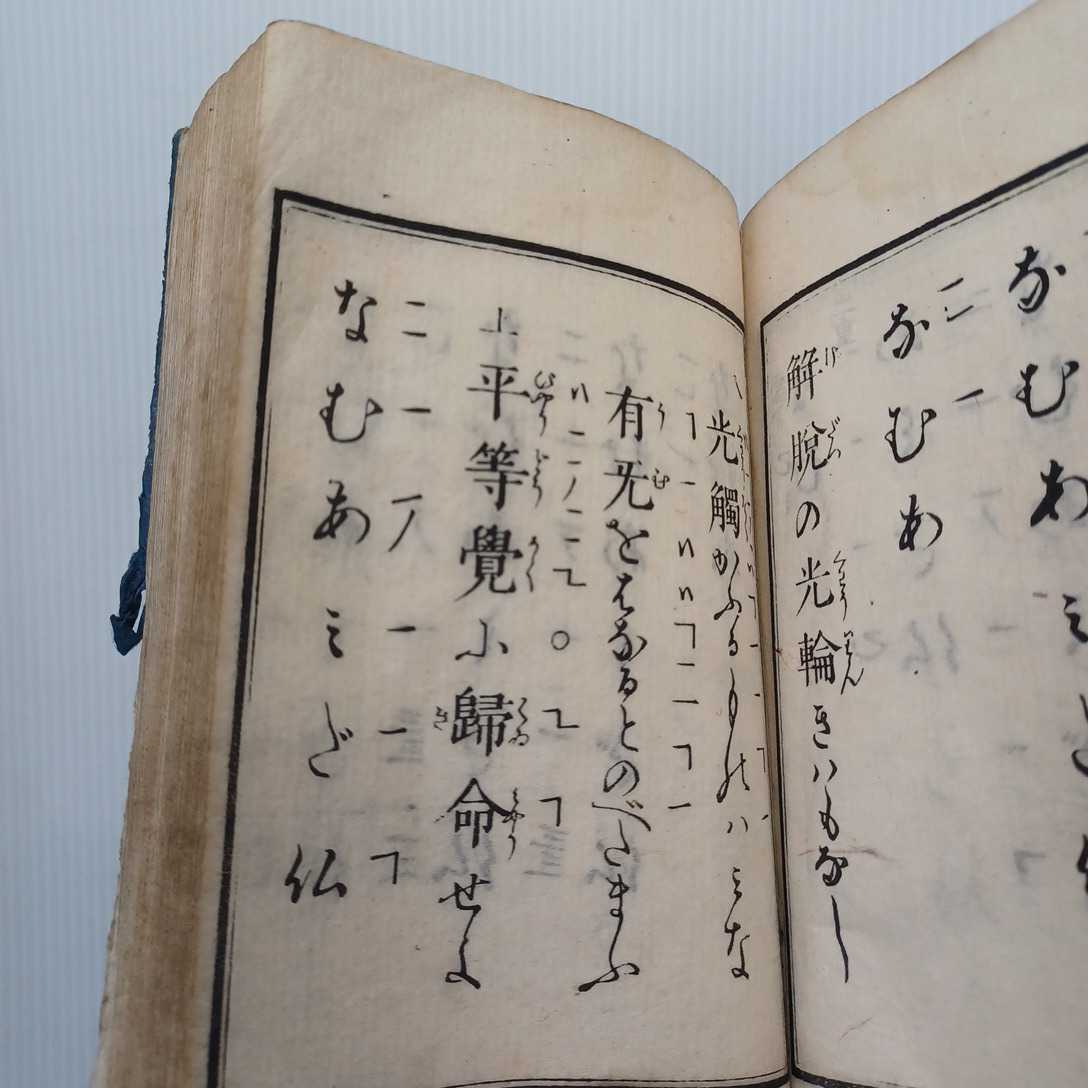 なむあみだ
なむあ
解脱の光輪きハもなし
光觸かふるものハみな
有无をはなるとのべたまふ
平等覺に歸命せよ
なむあみだ仏